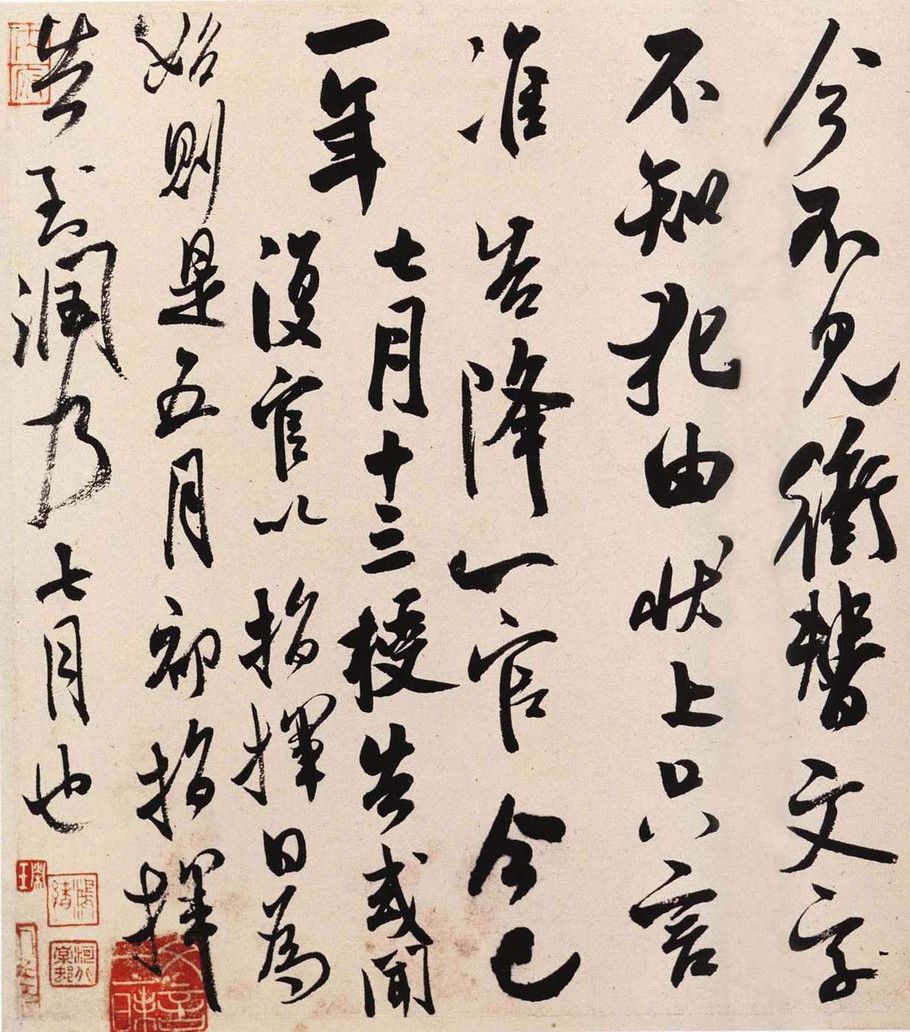 今不見衝替文字
不知犯由状上只言
准告降一官今已
一年
七月十三授告或聞
復官以指揮日為
始則是五月初指揮
告到潤乃七月也